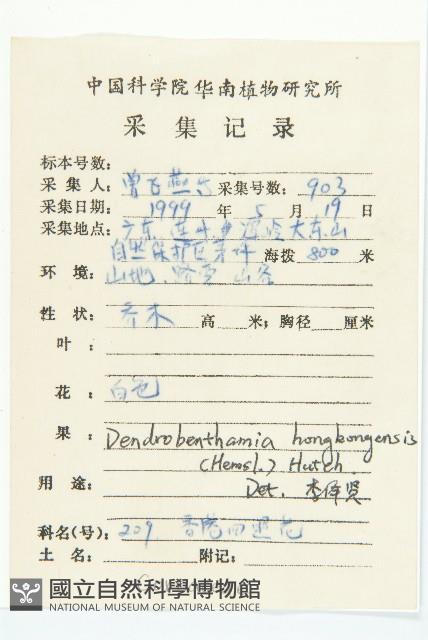 中国科学院华南植物研究所
采集记录
标本号数:
采集人: 曾飞燕 采集号数: 903
采集日期: 1999 年 5 月 19 日
采集地点: 广东 大东山
自然保护区 海拔 800 米
环境: 山地 山谷
性状: 乔木 高 米; 胸径 厘米
叶:
花: 白色
果: Dendrobenthamia hongkongensis
(Hemsl.) Hutch.
用途: Det. 李泽贤
科名(号): 209 香港四照花
土名: 附记:
國立自然科學博物館
NATIONAL MUSEUM OF NATURAL SCIENCE